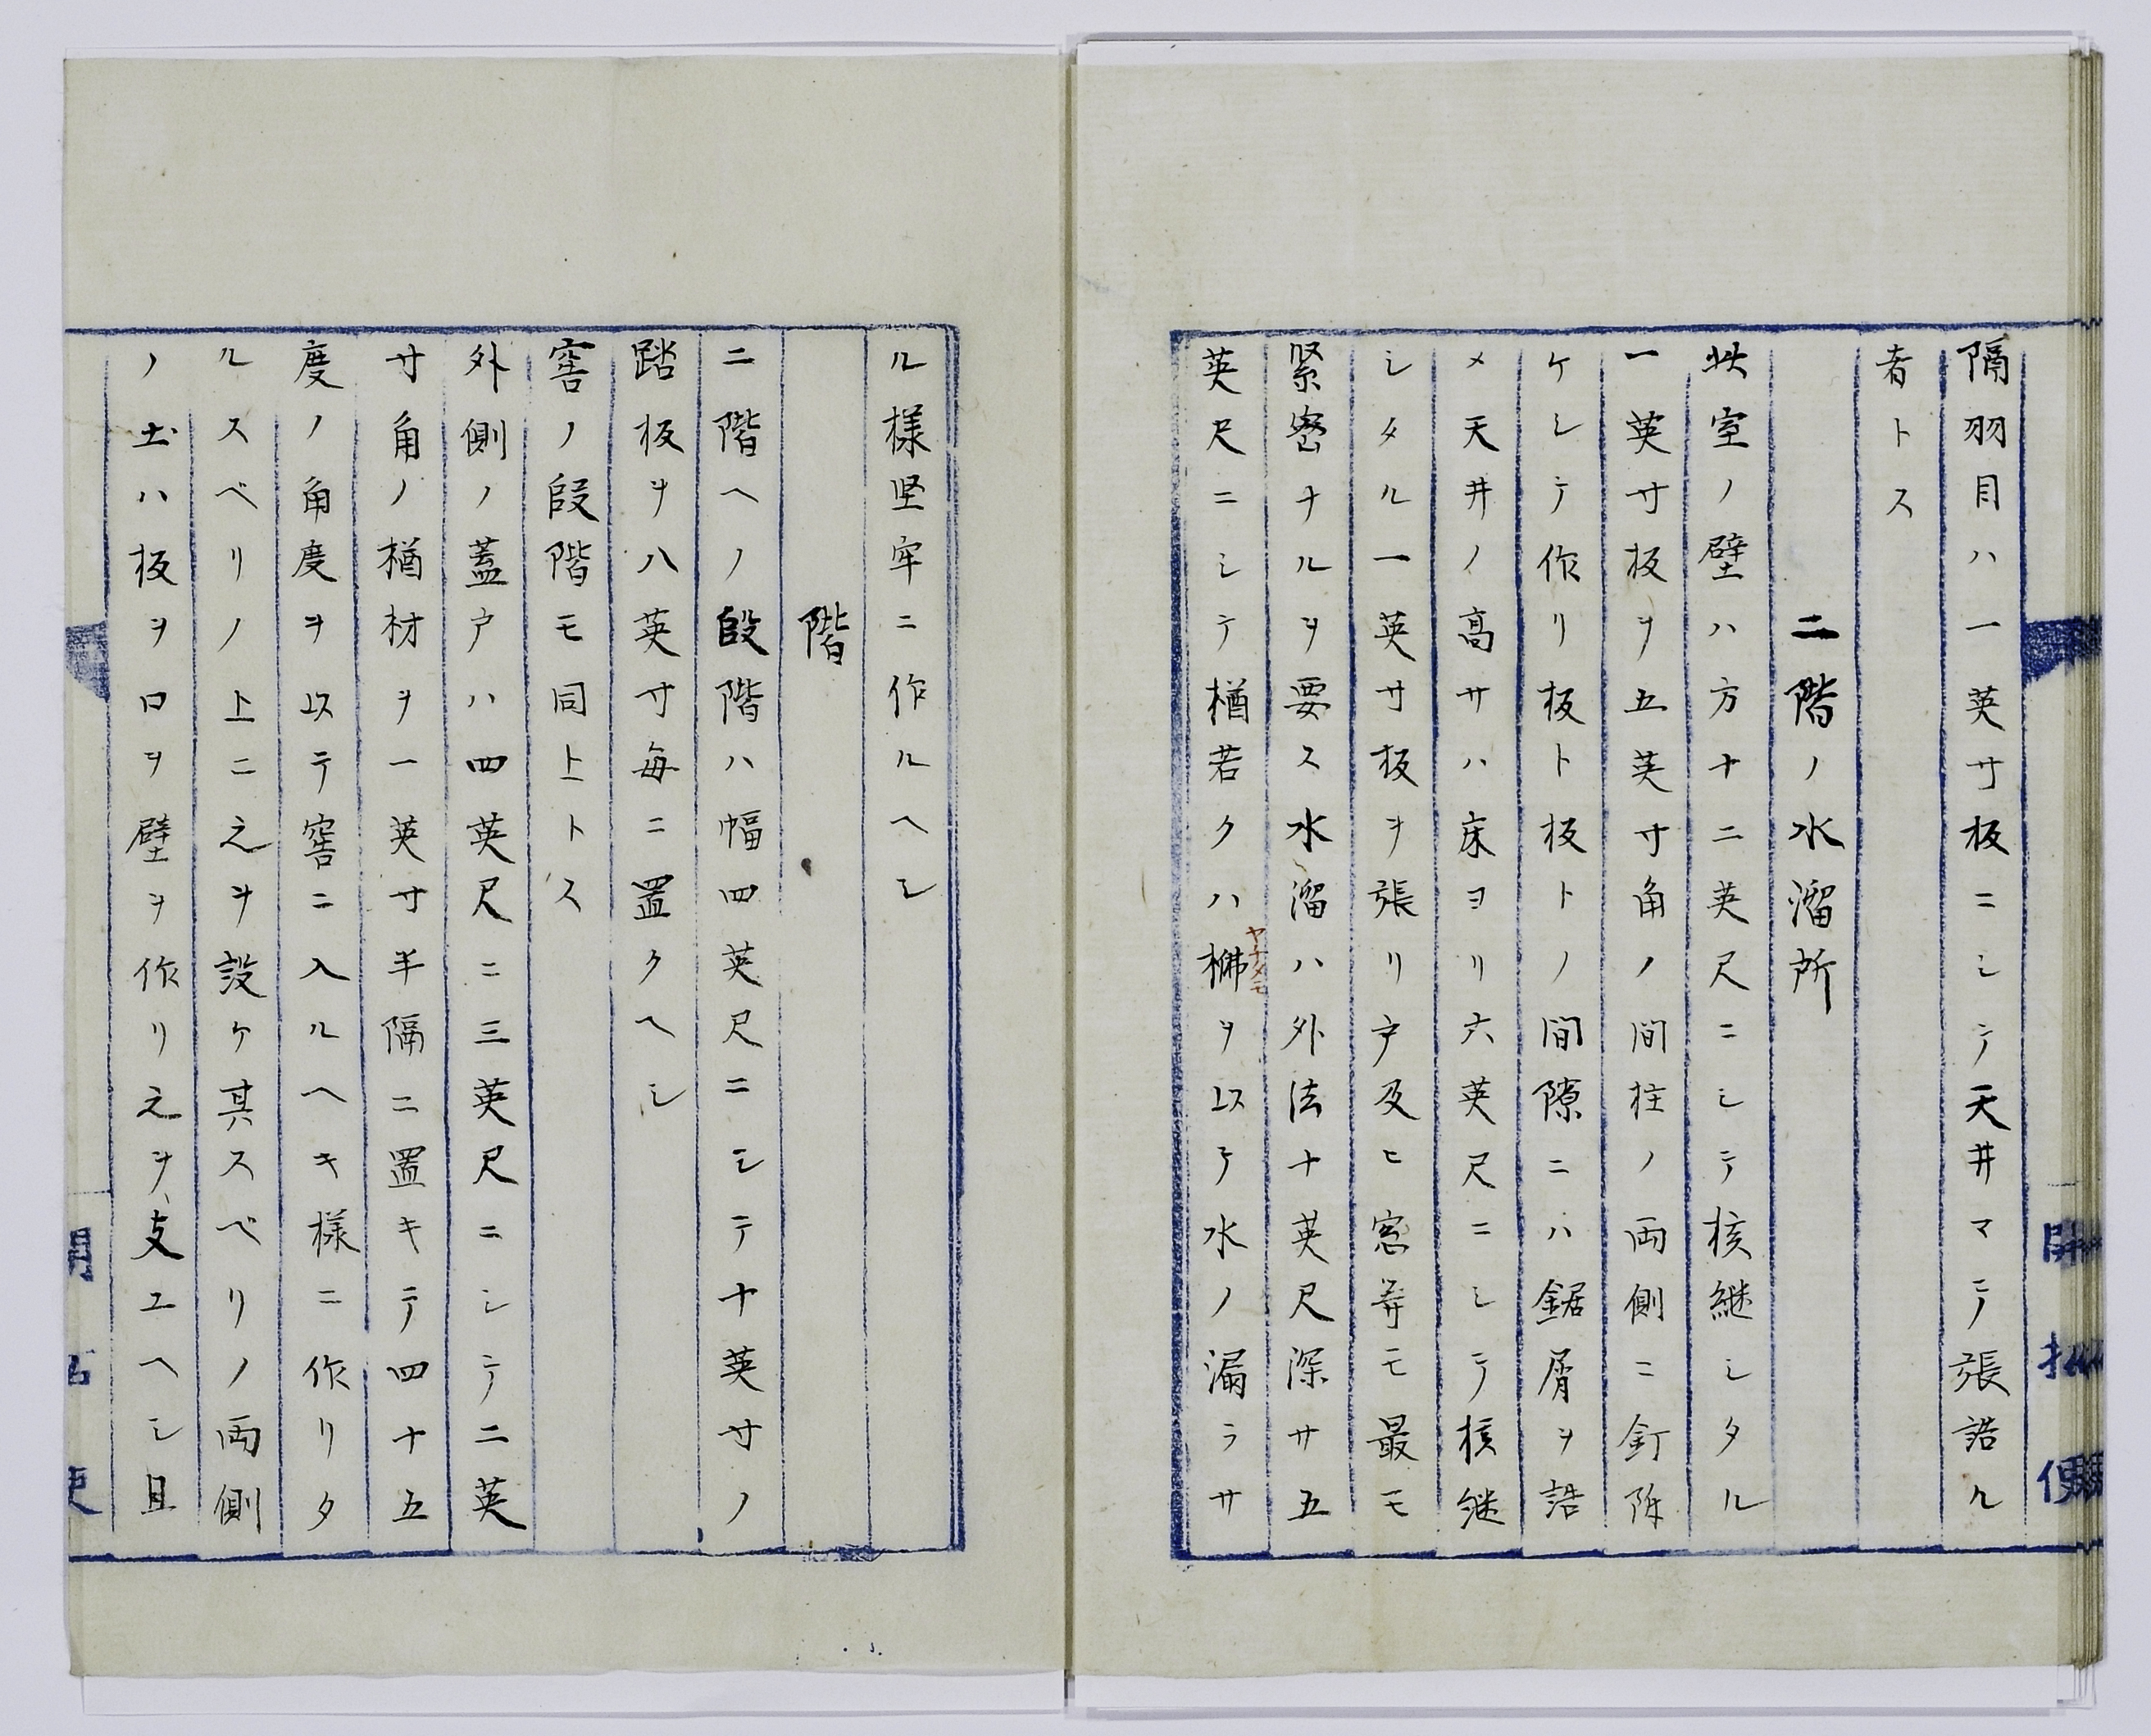 隔羽目ハ一英寸板ニシテ天井マテ張詰ル
者トス
二階ノ水溜所
此室ノ壁ハ方十二英尺ニシテ核継シタル
一英寸板ヲ五英寸角ノ間柱ノ両側ニ釘附
ケシテ作リ板ト板トノ間隙ニハ鋸屑ヲ詰
メ天井ノ高サハ床ヨリ六英尺ニシテ核継
シタル一英寸板ヲ張リ戸及ヒ窓等モ最モ
緊密ナルヲ要ス水溜ハ外法十英尺深サ五
英尺ニシテ楢若クハ梻ヲ以テ水ノ漏ラサ
ヤチタモ
ル様堅牢ニ作ルヘシ
階
二階ヘノ段階ハ幅四英尺ニシテ十英寸ノ
踏板ヲ八英寸毎ニ置クヘシ
窖ノ段階モ同上トス
外側ノ蓋戸ハ四英尺ニ三英尺ニシテ二英
寸角ノ楢材ヲ一英寸半隔ニ置キテ四十五
度ノ角度ヲ以テ窖ニ入ルヘキ様ニ作リタ
ルスベリノ上ニ之ヲ設ケ其スベリノ両側
ノ土ハ板ヲ口ヲ壁ヲ作リ之ヲ支エヘシ且
開拓使